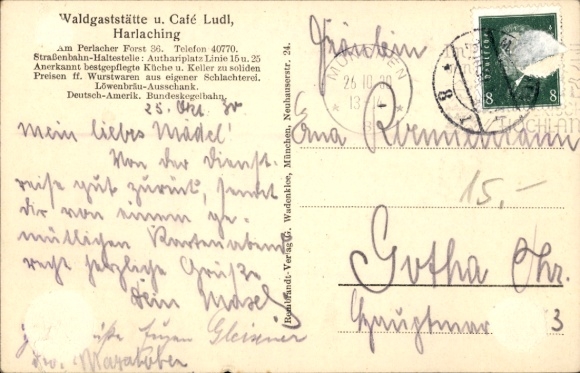 Waldgaststätte u. Café Ludl,
Harlaching
Am Perlacher Forst 36. Telefon 40770.
Straßenbahn-Haltestelle: Authariplatz Linie 15 u. 25
Anerkannt bestgepflegte Küche u. Keller zu soliden
Preisen ff. Wurstwaren aus eigener Schlachterei.
Löwenbräu-Ausschank.
Deutsch-Amerik. Bundeskegelbahn.
25. Okt. 30
Mein liebes Mädel!
Von der Dienst-
reise gut zurück, sendet
dir von einem ge-
mütlichen Kartenabend
recht herzliche Grüße
Dein
Eugen
Rembrandt-Verlag G. Wadenklee, München, Neuhauserstr. 24.
MÜNCHEN
26.10.30
8
Fräulein
15,-
Gotha Thr.
Hauptmar
3